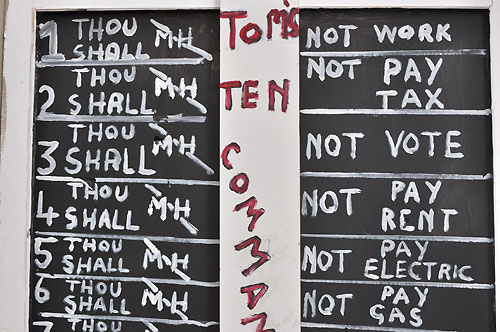 TOM'S
TEN
COMMAN
1 THOU
SHALL M-H
NOT WORK
2 THOU
SHALL M-H
NOT PAY
TAX
3 THOU
SHALL M-H
NOT VOTE
4 THOU
SHALL M-H
NOT PAY
RENT
5 THOU
SHALL M-H
NOT PAY
ELECTRIC
6 THOU
SHALL M-H
NOT PAY
GAS
7 THOU